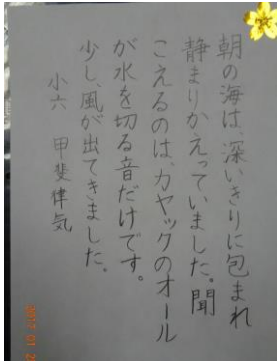 朝の海は、深いきりに包まれ
静まりかえっていました。聞
こえるのは、カヤックのオール
が水を切る音だけです。
少し、風が出てきました。
小六 甲斐律気